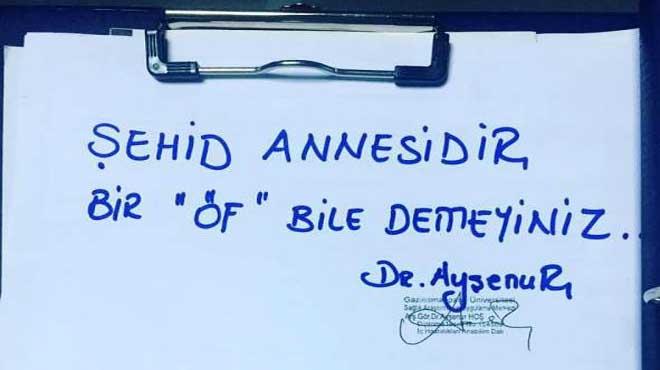 ŞEHİD ANNESİDİR
BİR "ÖF" BİLE DEMEYİNİZ..
Dr. Ayşenur
Gaziosmanpaşa Üniversitesi
Arş.Gör.Dr.Ayşenur HOŞ
İç Hastalıkları Anabilim Dalı